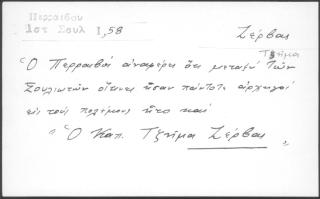 Περραιβου
Ιστ Σουλ Ι, 58
Ζέρβας
Τζήμα
Ὁ Περραιβος ἀναφέρει ὅτι μεταξύ τῶν
Σουλιωτῶν οἵτινες ἦσαν πάντοτε ἀρχηγοί
εἰς τούς πολέμους ἦτο καί
"Ὁ Καπ. Τζήμα Ζέρβας"